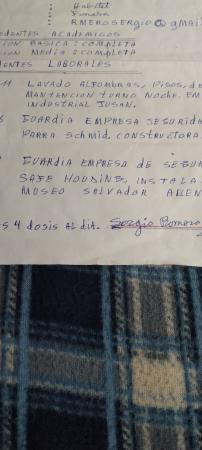 : Habitat
: Fonasa
: RMEROSERGIO@gmai
EDENTES ACADEMICOS
ION BASICA: COMPLETA
CION MEDIA: COMPLETA
DENTES LABORALES
LAVADO ALFOMBRAS, PISOS, DE
MANTENCION TURNO NOCHE. EM
INDUSTRIAL SUSAN.
GUARDIA EMPRESA SEGURIDA
PARRA SCHMID. CONSTRUCTORA
GUARDIA EMPRESA DE SEGU
SAFE HOUSING, INSTALA
MUSEO SALVADOR ALLEN
S 4 dosis AL DIA. Sergio Romero